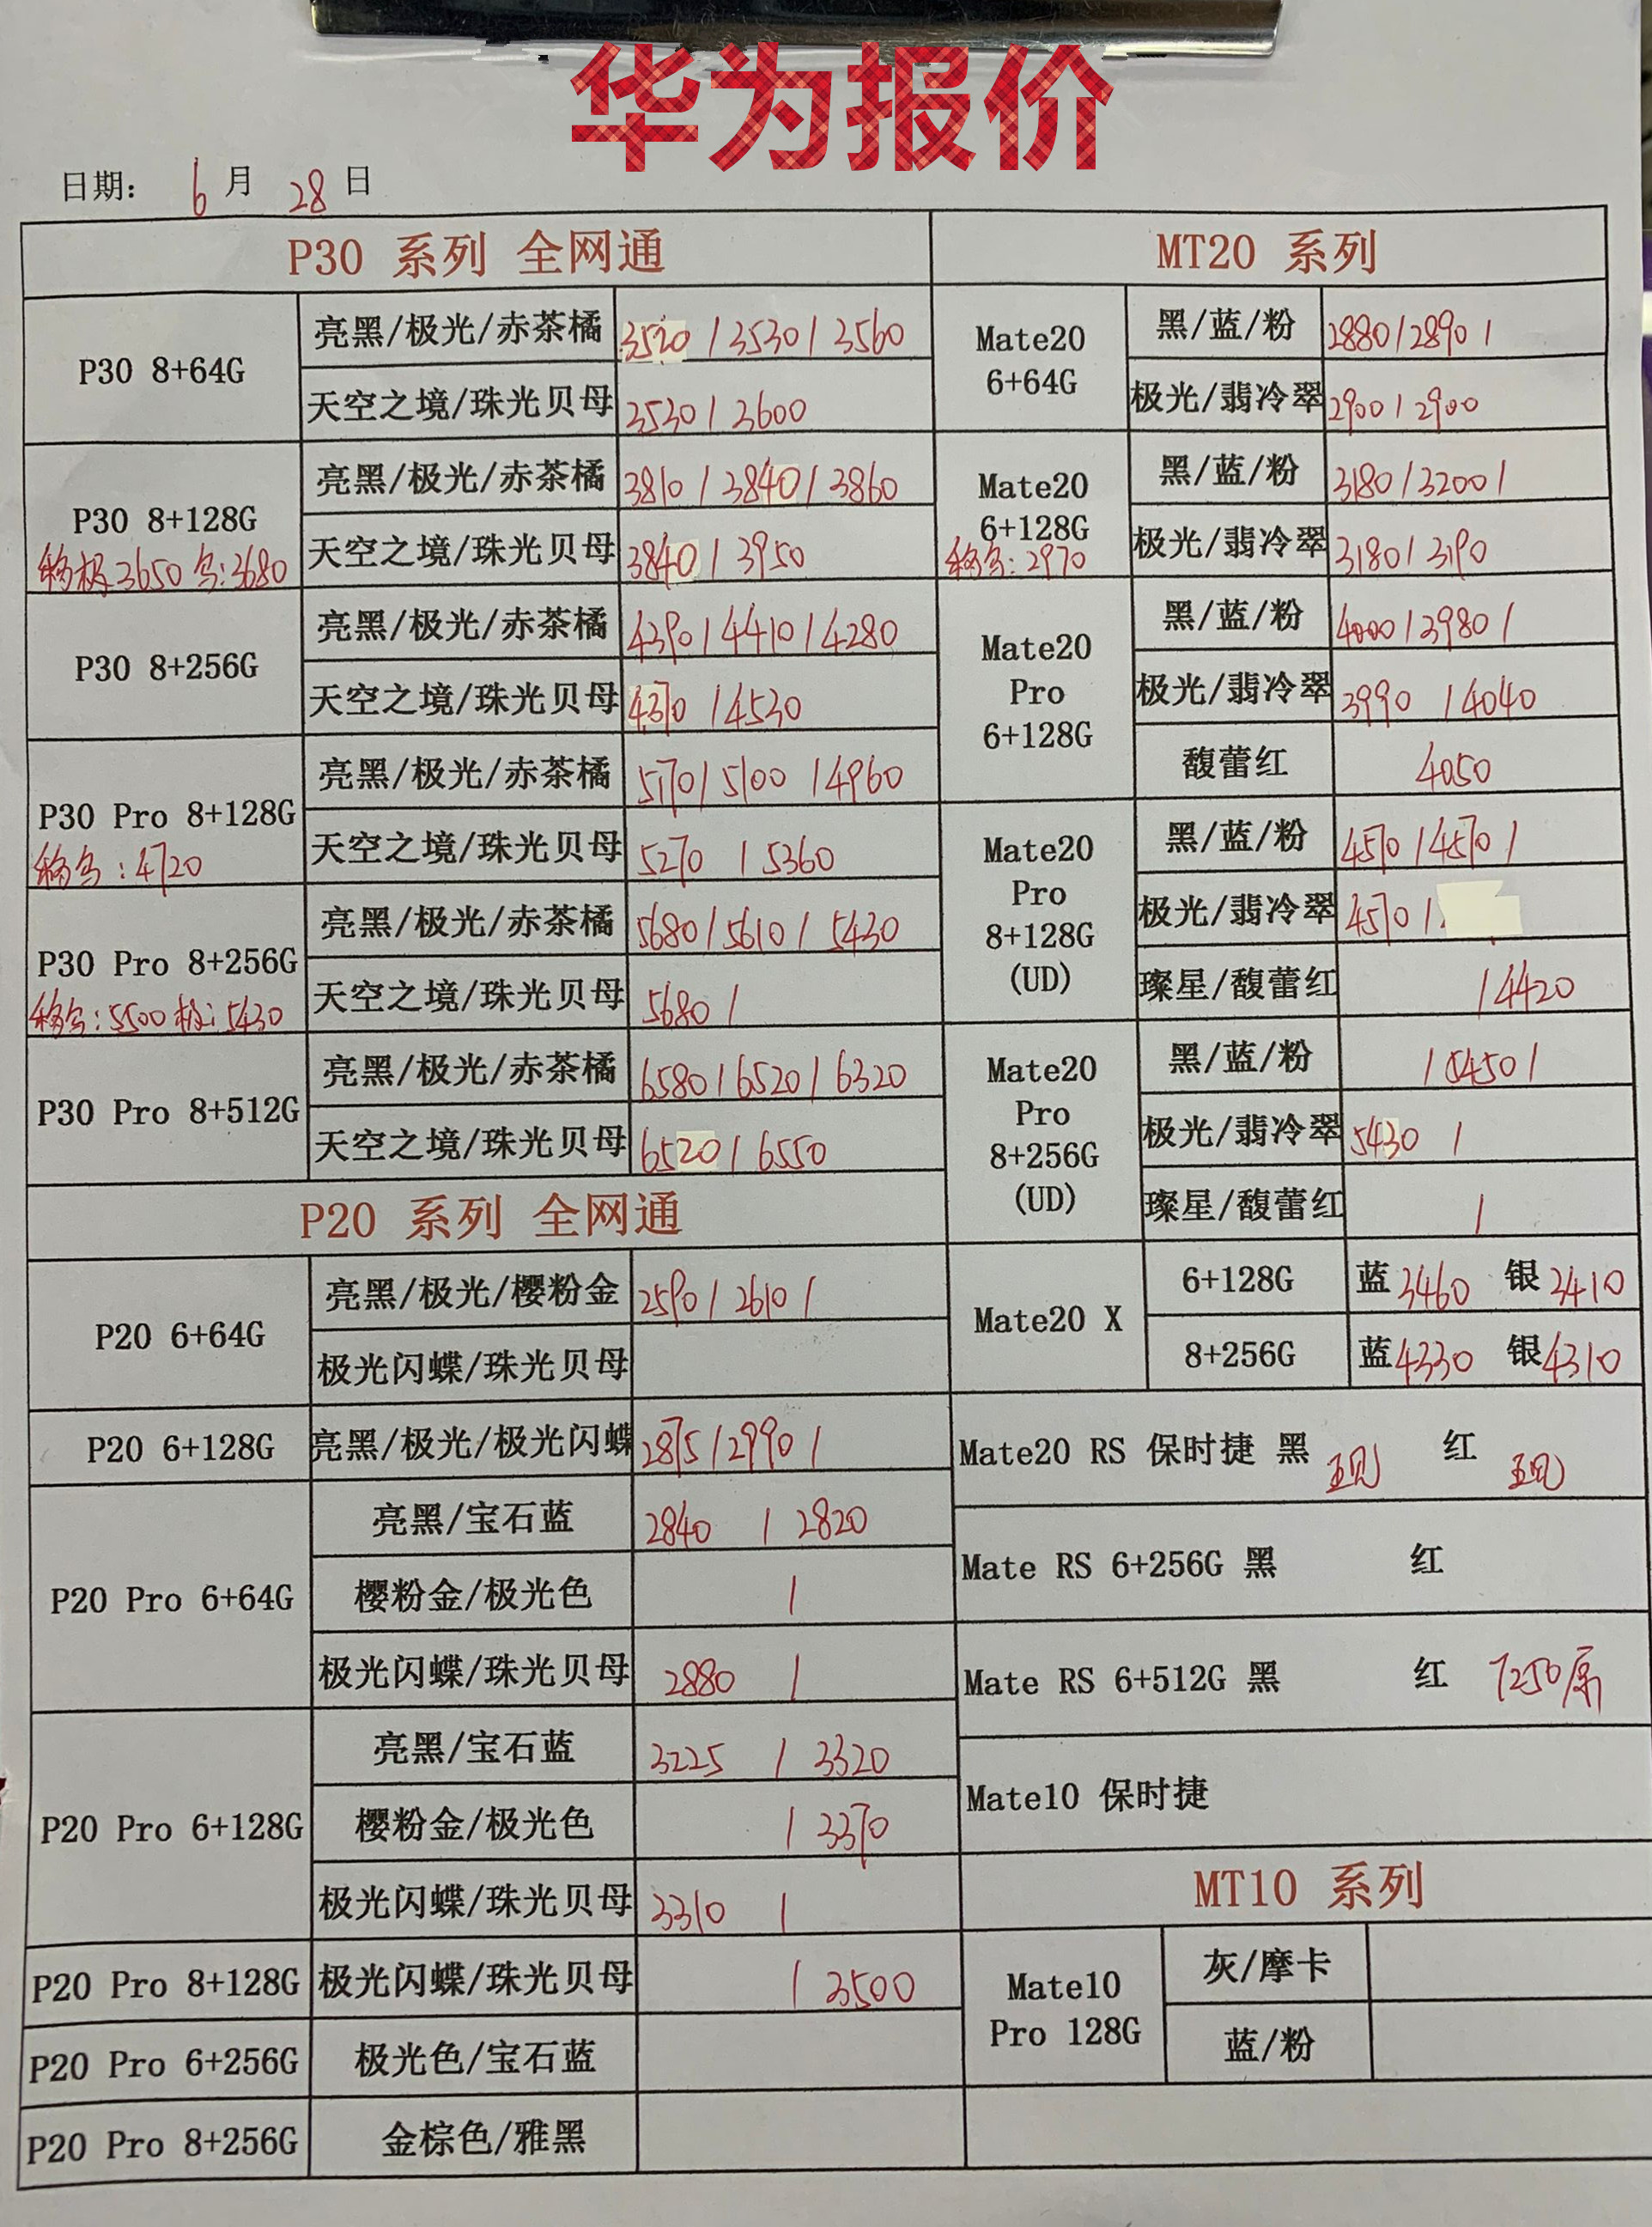 华为报价
日期: 6 月 28 日
P30 系列 全网通
P30 8+64G
亮黑/极光/赤茶橘 3520 / 3530 / 3560
天空之境/珠光贝母 3530 / 3600
P30 8+128G
移极3650 鸟:3680
亮黑/极光/赤茶橘 3810 / 3840 / 3860
天空之境/珠光贝母 3840 / 3950
P30 8+256G
亮黑/极光/赤茶橘 4390 / 4410 / 4280
天空之境/珠光贝母 4370 / 4530
P30 Pro 8+128G
移鸟:4720
亮黑/极光/赤茶橘 5170 / 5100 / 4960
天空之境/珠光贝母 5270 / 5360
P30 Pro 8+256G
移鸟:5500 极:5430
亮黑/极光/赤茶橘 5680 / 5610 / 5430
天空之境/珠光贝母 5680 /
P30 Pro 8+512G
亮黑/极光/赤茶橘 6580 / 6520 / 6320
天空之境/珠光贝母 6520 / 6550
P20 系列 全网通
P20 6+64G
亮黑/极光/樱粉金 2590 / 2610 /
极光闪蝶/珠光贝母
P20 6+128G
亮黑/极光/极光闪蝶 2875 / 2990 /
P20 Pro 6+64G
亮黑/宝石蓝 2840 / 2820
樱粉金/极光色 /
极光闪蝶/珠光贝母 2880 /
P20 Pro 6+128G
亮黑/宝石蓝 3225 / 3320
樱粉金/极光色 / 3370
极光闪蝶/珠光贝母 3310 /
P20 Pro 8+128G 极光闪蝶/珠光贝母 / 3500
P20 Pro 6+256G 极光色/宝石蓝
P20 Pro 8+256G 金棕色/雅黑
MT20 系列
Mate20
6+64G
黑/蓝/粉 2880 / 2890 /
极光/翡冷翠 2900 / 2900
Mate20
6+128G
移鸟:2970
黑/蓝/粉 3180 / 3200 /
极光/翡冷翠 3180 / 3190
Mate20
Pro
6+128G
黑/蓝/粉 4000 / 3980 /
极光/翡冷翠 3990 / 4040
馥蕾红 4050
Mate20
Pro
8+128G
(UD)
黑/蓝/粉 4570 / 4570 /
极光/翡冷翠 4570 /
璨星/馥蕾红 / 4420
Mate20
Pro
8+256G
(UD)
黑/蓝/粉 / 5450 /
极光/翡冷翠 5430 /
璨星/馥蕾红 /
Mate20 X
6+128G 蓝 3460 银 3410
8+256G 蓝 4330 银 4310
Mate20 RS 保时捷 黑 红
Mate RS 6+256G 黑 红
Mate RS 6+512G 黑 红 7250
Mate10 保时捷
MT10 系列
Mate10
Pro 128G
灰/摩卡
蓝/粉